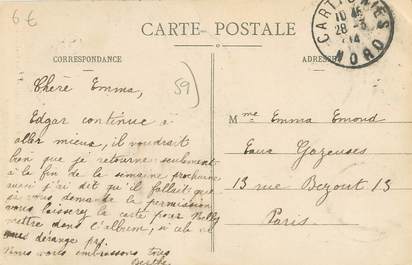 6 €
CARTE POSTALE
CORRESPONDANCE
ADRESSE
CARTIGNIES
10 45
28 - 5
14
NORD
59
Chère Emma,
Edgar continue à
aller mieux, il voudrait
bien que je retourne seulement
à la fin de la semaine prochaine
mais j'ai dit qu'il fallait que
je vous demande la permission
vous laisserez la carte pour Nelly
mettre dans l'album, si cela ne
vous dérange pas.
Nous vous embrassons tous
Berthe
Mme Emma Emond
Eaux Gazeuses
13 rue Bezout 13
Paris